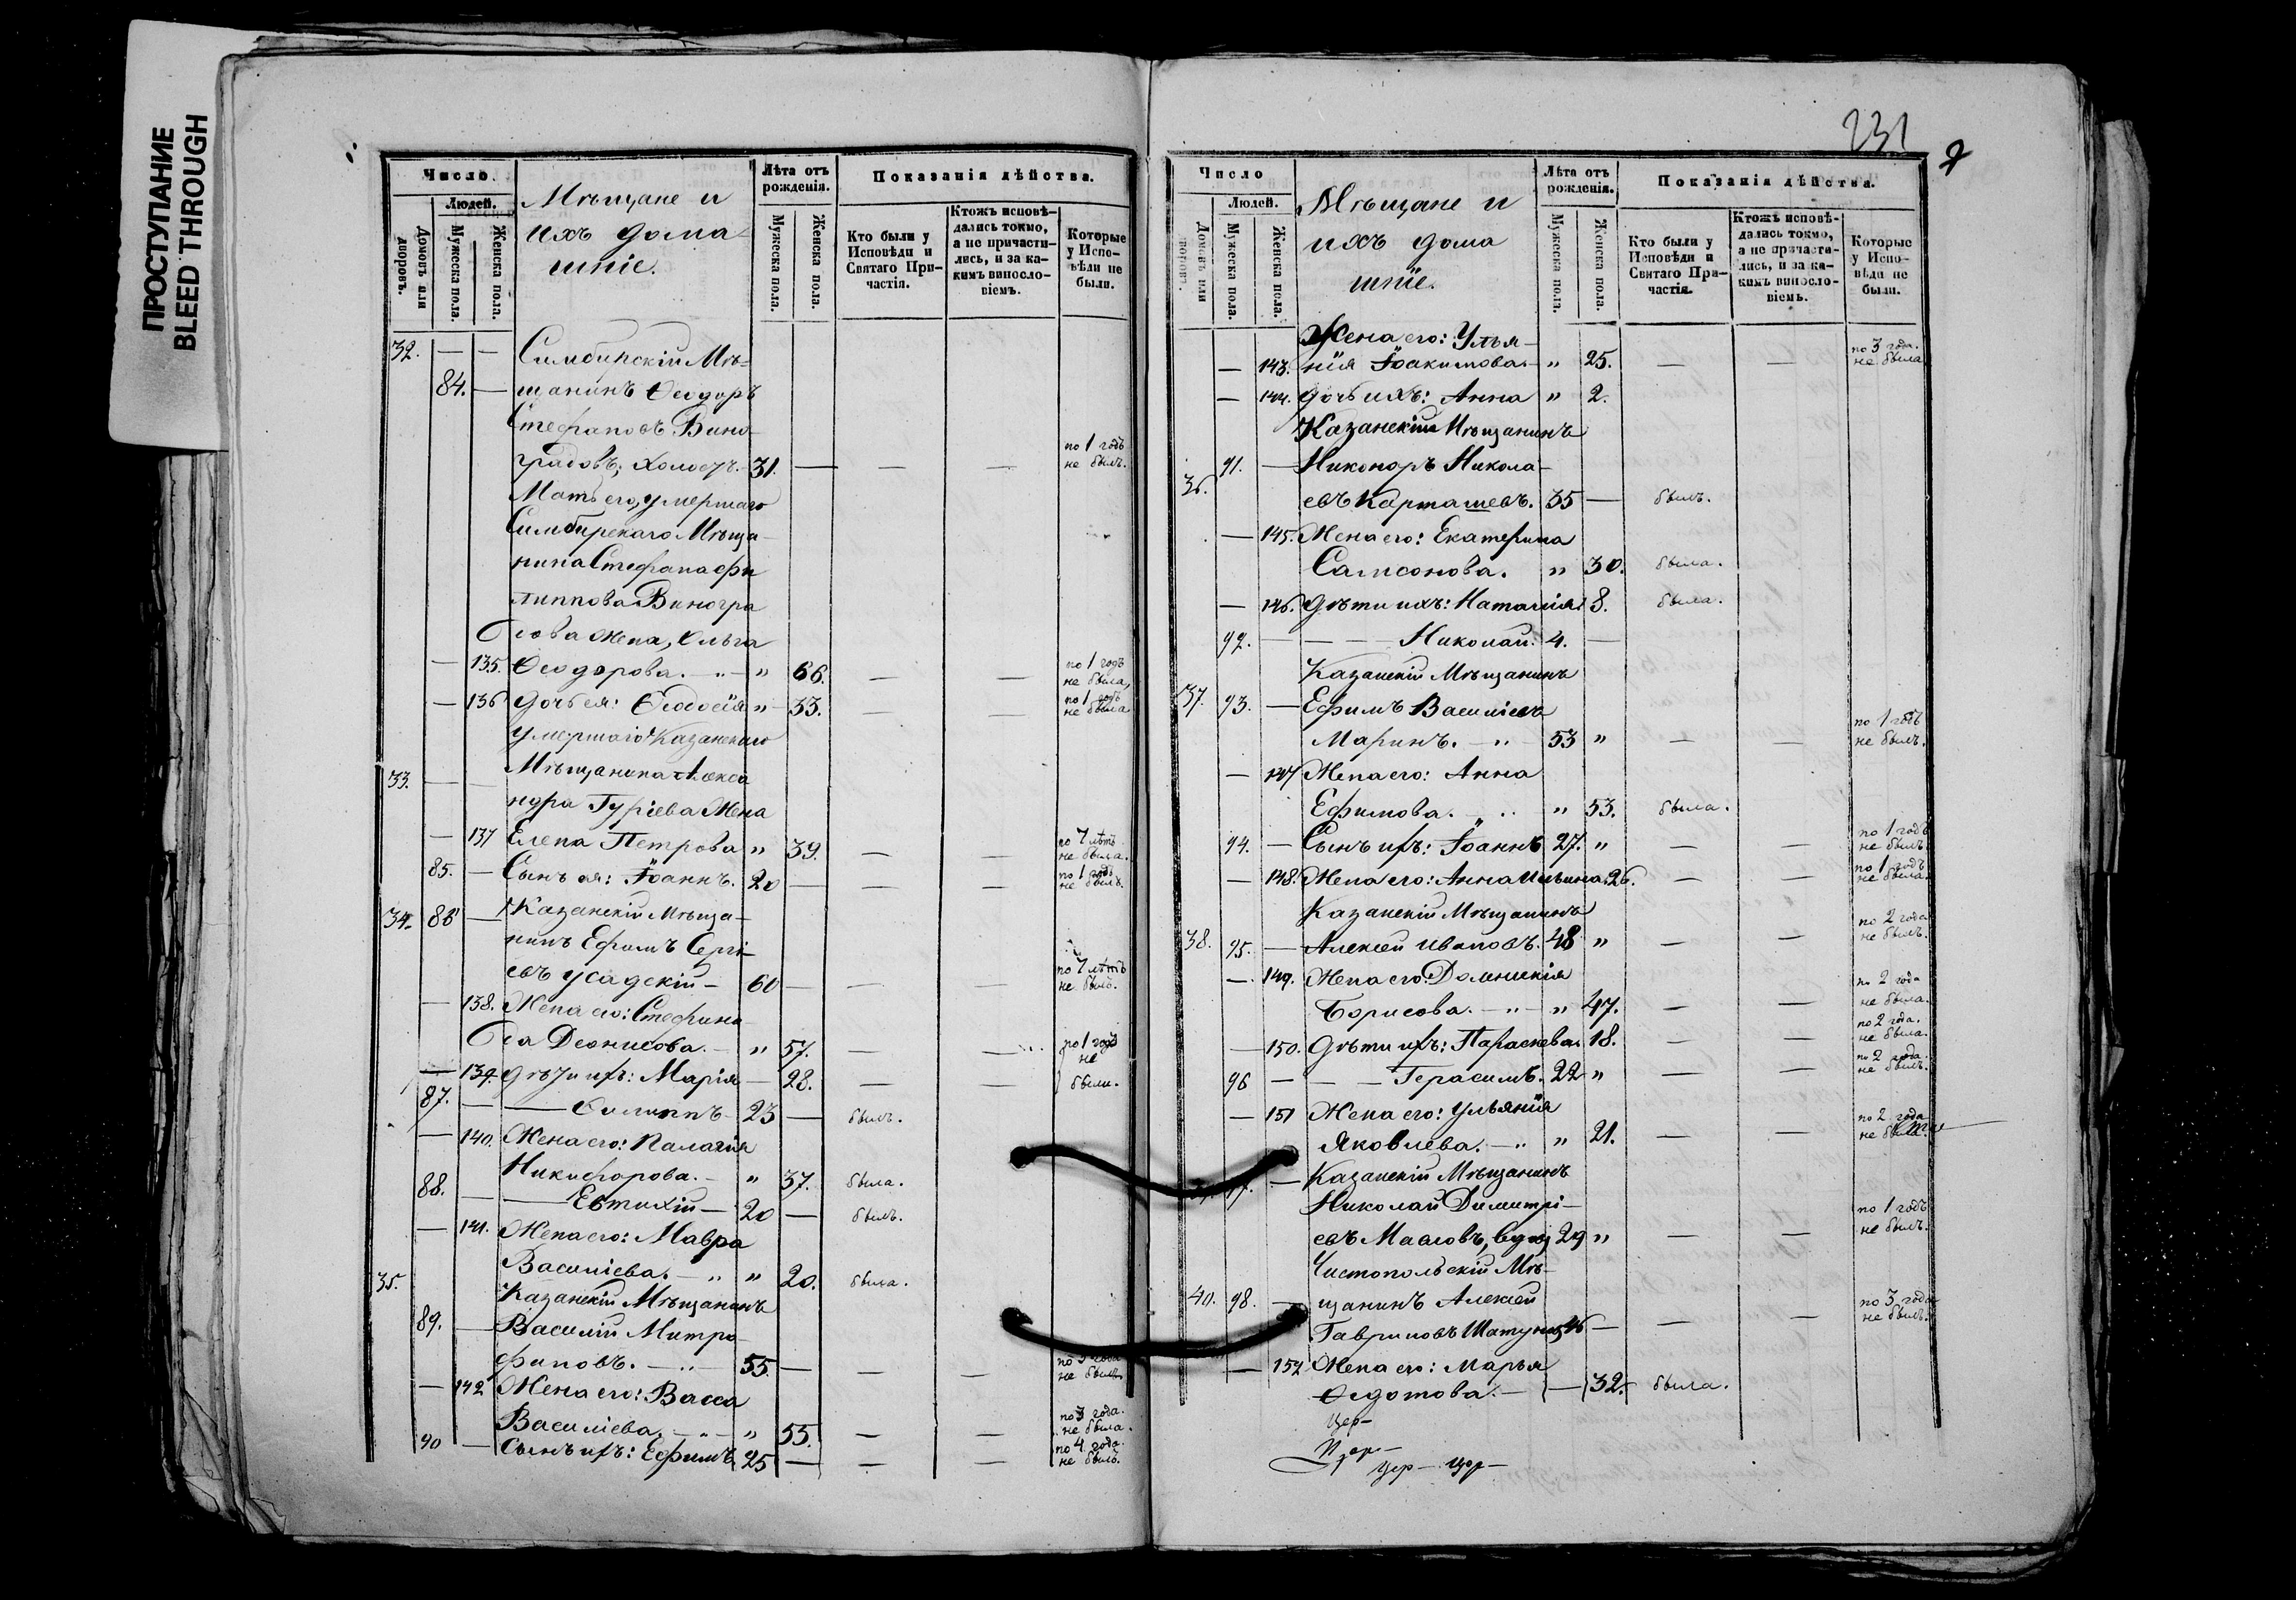 ПРОСТУПАНИЕ
BLEED THROUGH
Число.
Людей.
Домовъ или дворовъ.
Мужеска пола.
Женска пола.
Мѣщане и
ихъ дома-
шніе.
Лѣта отъ рожденія.
Мужеска пола.
Женска пола.
Показанія дѣйства.
Кто были у Исповѣди и Святаго При-частія.
Ктожъ исповѣ-дались токмо, а не причасти-лись, и за ка-кимъ винословіемъ.
Которые у Испо-вѣди не были.
32. — — Симбирскій Мѣ-
84. — щанинъ Ѳеодоръ
Стефановъ Вино-
градовъ, холостъ. 31. — — — по 1 годъ не былъ.
Мать его, умершаго
Симбирскаго Мѣща-
нина Стефана Фи
липпова Виногра
дова Жена, Ольга
— 135. Ѳеодорова. — " 66. — — по 1 годъ не была,
— 136 Дочь ея: Ѳеодосія " 33. — — по 1 годъ не была
умершаго Казанскаго
33. — — Мѣщанина Алекса
ндра Гуріева Жена
— 137 Елена Петрова " 39. — — по 7 лѣтъ не была.
85. — Сынъ ея: Іоаннъ. 20 — — — по 1 годъ не былъ.
34. 86 — Казанскій Мѣща-
нинъ Ефимъ Сергі-
евъ Усадскій — 60 — — — по 7 лѣтъ не былъ.
— 138. Жена его: Стефани
да Деонисова. — " 57. — — по 1 годъ
— 139. Дѣти ихъ: Марія — 28. — — не были.
87. — — Филиппъ — 23 — былъ.
— 140. Жена его: Палагія
Никифорова. — " 37. была.
88. — — Евтихій — 20 — былъ.
— 141. Жена его: Мавра
Василіева. — " " 20. была.
35. Казанскій Мѣщанинъ
89. — Василій Митро-
фановъ. — " — 55. — — — по 3 года не былъ
— 142 Жена его: Васса
Василіева. — " 55. — — по 3 года. не была.
90 — Сынъ ихъ: Ефимъ 25 — — — по 4 года. не былъ.
231
Число
Людей.
Домовъ или дворовъ.
Мужеска пола.
Женска пола.
Мѣщане и
ихъ дома
шніе.
Лѣта отъ рожденія.
Мужеска пола.
Женска пола.
Показанія дѣйства.
Кто были у Исповѣди и Святаго При-частія.
Ктожъ исповѣ-дались токмо, а не причасти-лись, и за ка-кимъ винословіемъ.
Которые у Испо-вѣди не были.
Жена его: Улья-
— 143. нія Іоакимова. — " 25. — — по 3 года. не была
— 144. дочь ихъ: Анна " 2.
Казанскій Мѣщанинъ
36. 91. — Никоноръ Никола-
евъ Карташевъ. 35 — былъ.
— 145. Жена его: Екатерина
Самсонова. " 30. была.
— 146. дѣти ихъ: Наталія 8. была.
92. — — — Николай. 4. —
Казанскій Мѣщанинъ
37. 93. — Ефимъ Василіевъ
Маринъ. — " — 53 " — — по 1 годъ не былъ.
— 147 Жена его: Анна
Ефимова. " 53. была.
94. — Сынъ ихъ: Іоаннъ 27. " — — по 1 годъ не былъ
— 148. Жена его: Анна Ильина. 26. — — по 1 годъ не была.
Казанскій Мѣщанинъ
38. 95. — Алексѣй Ивановъ. 48 " — — по 2 года не былъ.
— 149. Жена его: Домникія
Борисова. — " — " 47. — — по 2 года не была.
— 150. Дѣти ихъ: Параскева. 18. — — по 2 года. не была.
96 — — — Герасимъ. 22 " — — по 2 года. не былъ.
— 151 Жена его: Ульянія
Яковлева. — " " 21. — — по 2 года не была.
97. — Казанскій Мѣщанинъ
Николай Димитрі-
евъ 29 " — — по 1 годъ не былъ.
Чистопольскій Мѣ-
40. 98. — щанинъ Алексѣй
Гавриловъ 46 — — — по 3 года не былъ.
— 152 Жена его: Марья
Ѳедотова. — — 32. была.
Цер-
Цер— Цер—